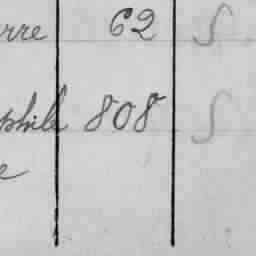 erre 62 S
phile 808 S
e